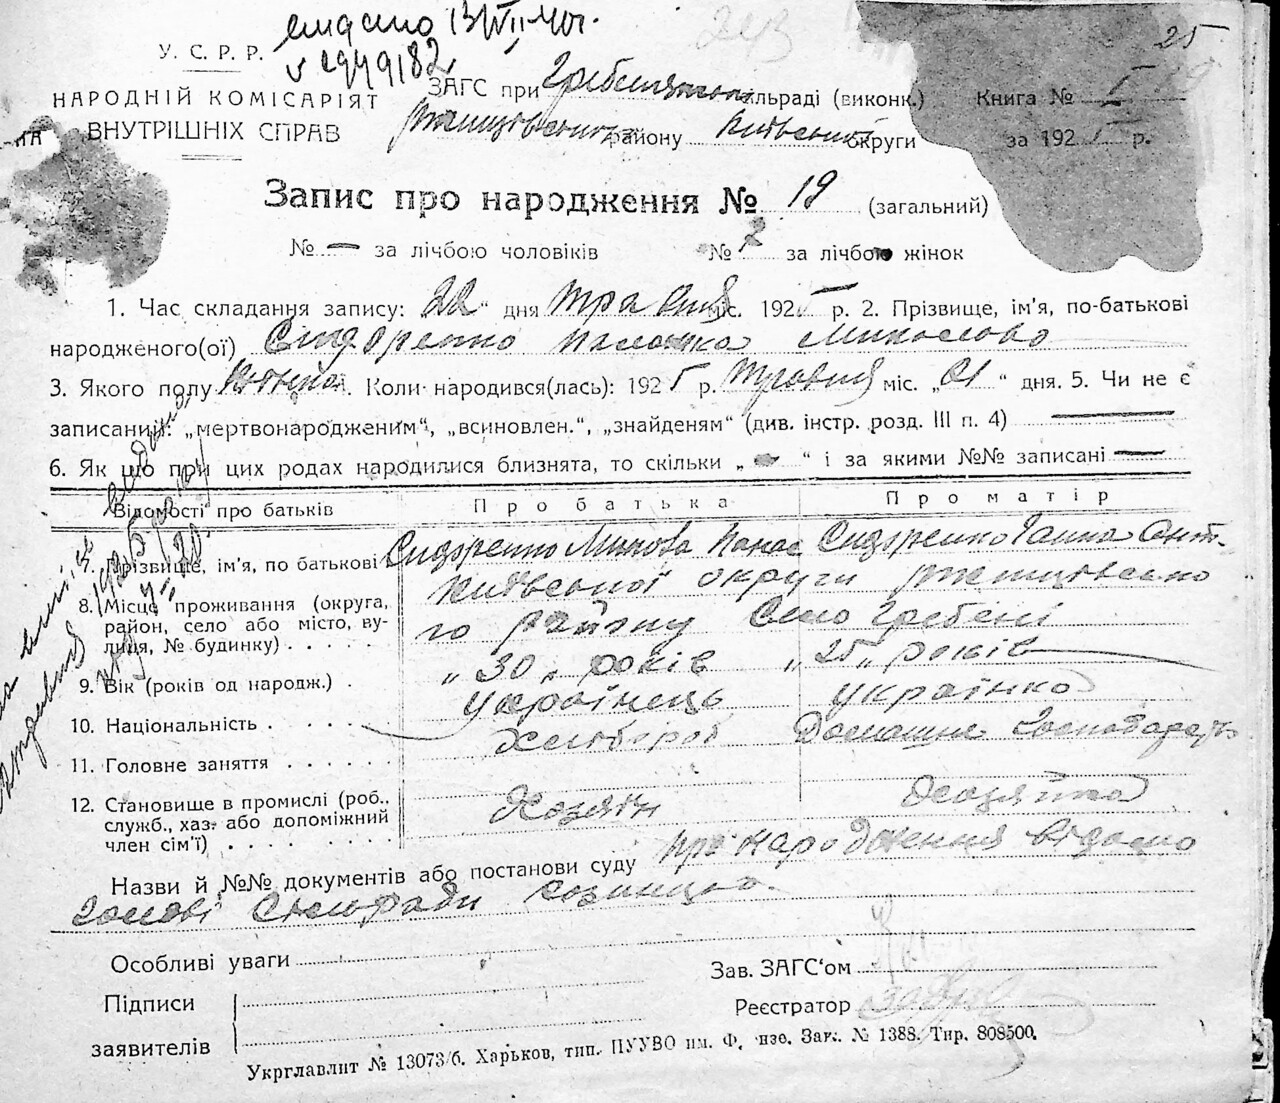 видано 13/VII-40г.
25
У. С. Р. Р.
НАРОДНІЙ КОМІСАРІЯТ
ВНУТРІШНІХ СПРАВ
ЗАГС при сільраді (виконк.) Книга №
району Київської округи за 192 р.
Запис про народження № 19 (загальний)
№ — за лічбою чоловіків № 7 за лічбою жінок
1. Час складання запису: 22 " дня травня міс. 1925 р. 2. Прізвище, ім'я, по-батькові
народженого(ої) Сидоренко
3. Якого полу жіночої. Коли народився(лась): 1925 р. травня міс. „ 21 " дня. 5. Чи не є
записаний: „мертвонародженим", „всиновлен.", „знайденям" (див. інстр. розд. III п. 4) —
6. Як що при цих родах народилися близнята, то скільки „ — " і за якими №№ записані —
Відомості про батьків Про батька Про матір
7. Прізвище, ім'я, по батькові Сидоренко Панас Сидоренко Ганна
Київської округи Ржищівсько
8. Місце проживання (округа, го району Село Гребені
район, село або місто, ву-
лиця, № будинку)
9. Вік (років од народж.) „30„ років „25„ років
10. Національність українець українка
11. Головне заняття Хлібороб Домашнє
12. Становище в промислі (роб., Хозяїн Хозяйка
служб., хаз. або допоміжний
член сім'ї)
Назви й №№ документів або постанови суду про народження відомо
голові сільради
Особливі уваги
Зав. ЗАГС'ом
Підписи
Реєстратор
заявителів
Укрглавлит № 13073/б. Харьков, тип. ПУУВО им. Ф. Зак. № 1388. Тир. 808500.